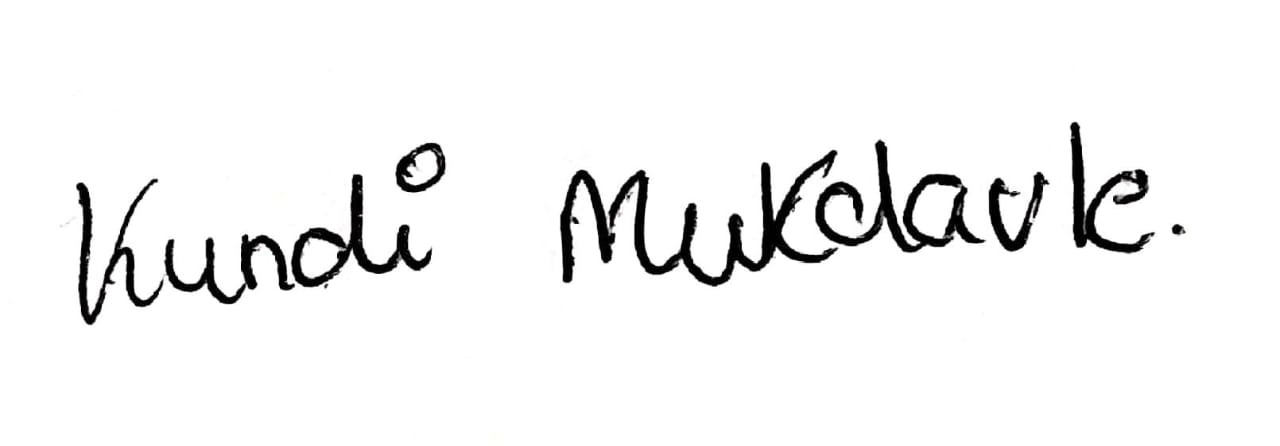 Kundi Mukdavle.